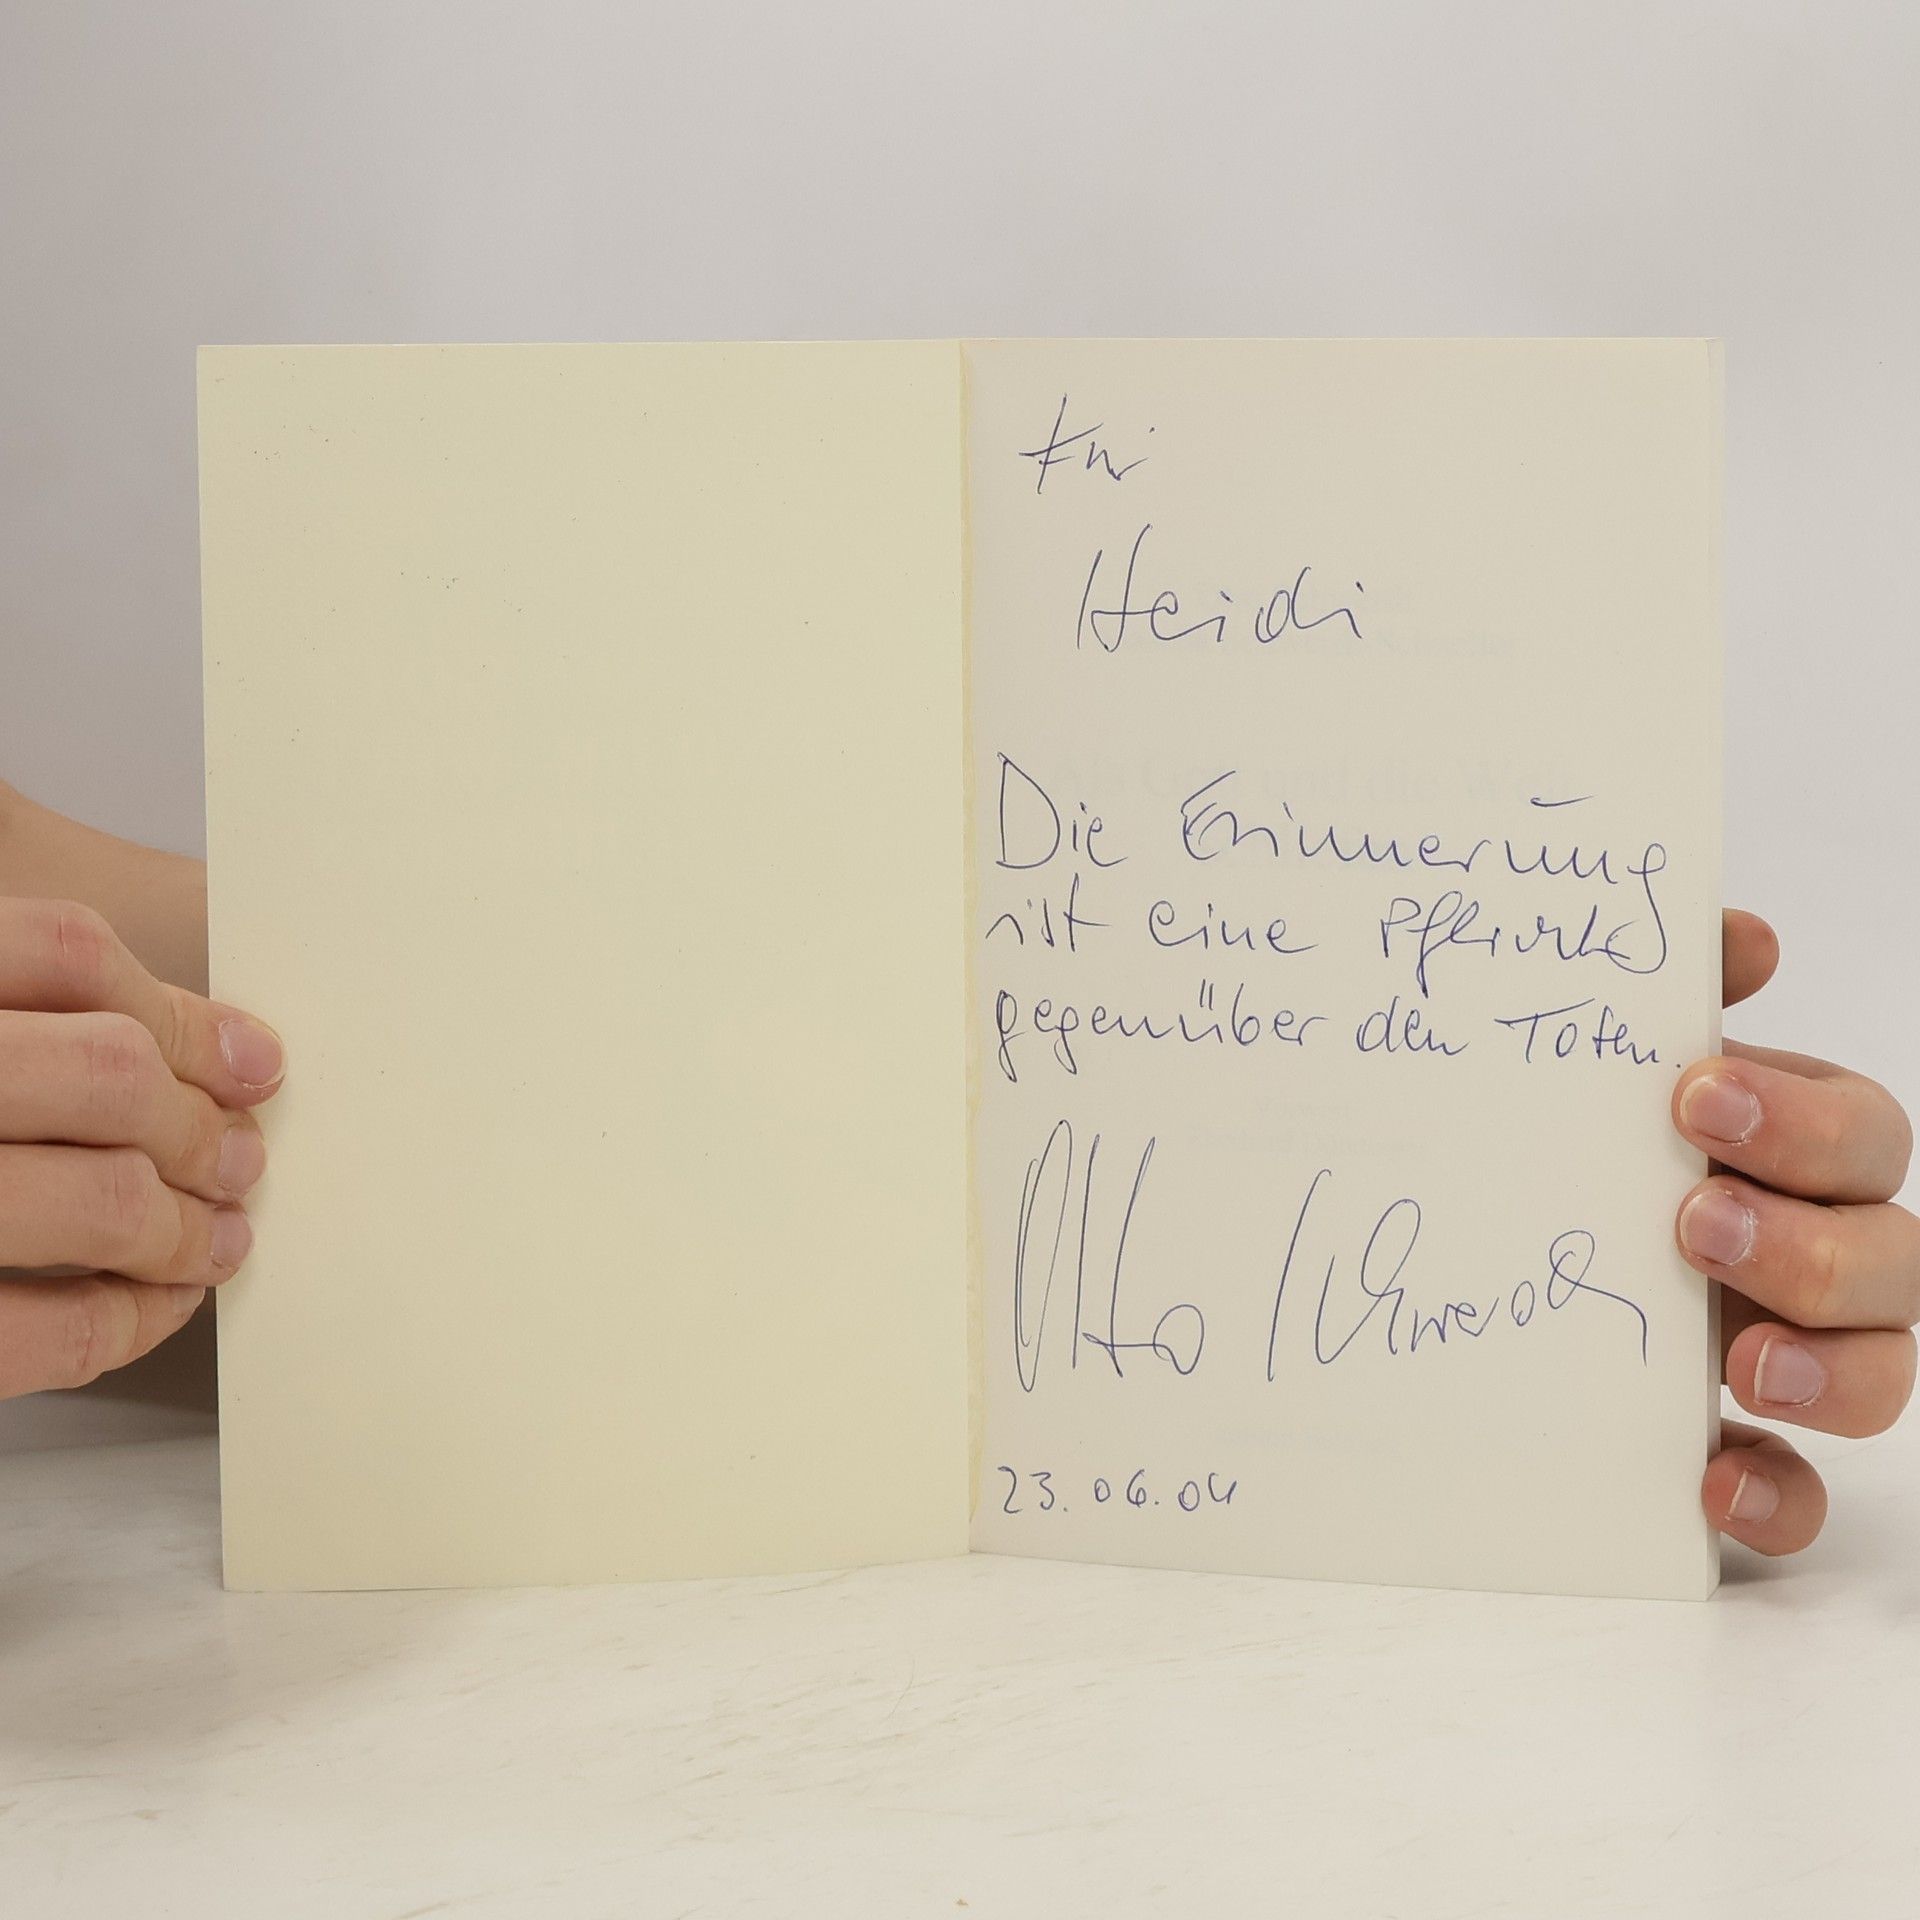 Für
Heidi
Die Erinnerung
ist eine Pflicht
gegenüber den Toten.
Otto Schwerdt
23.06.04